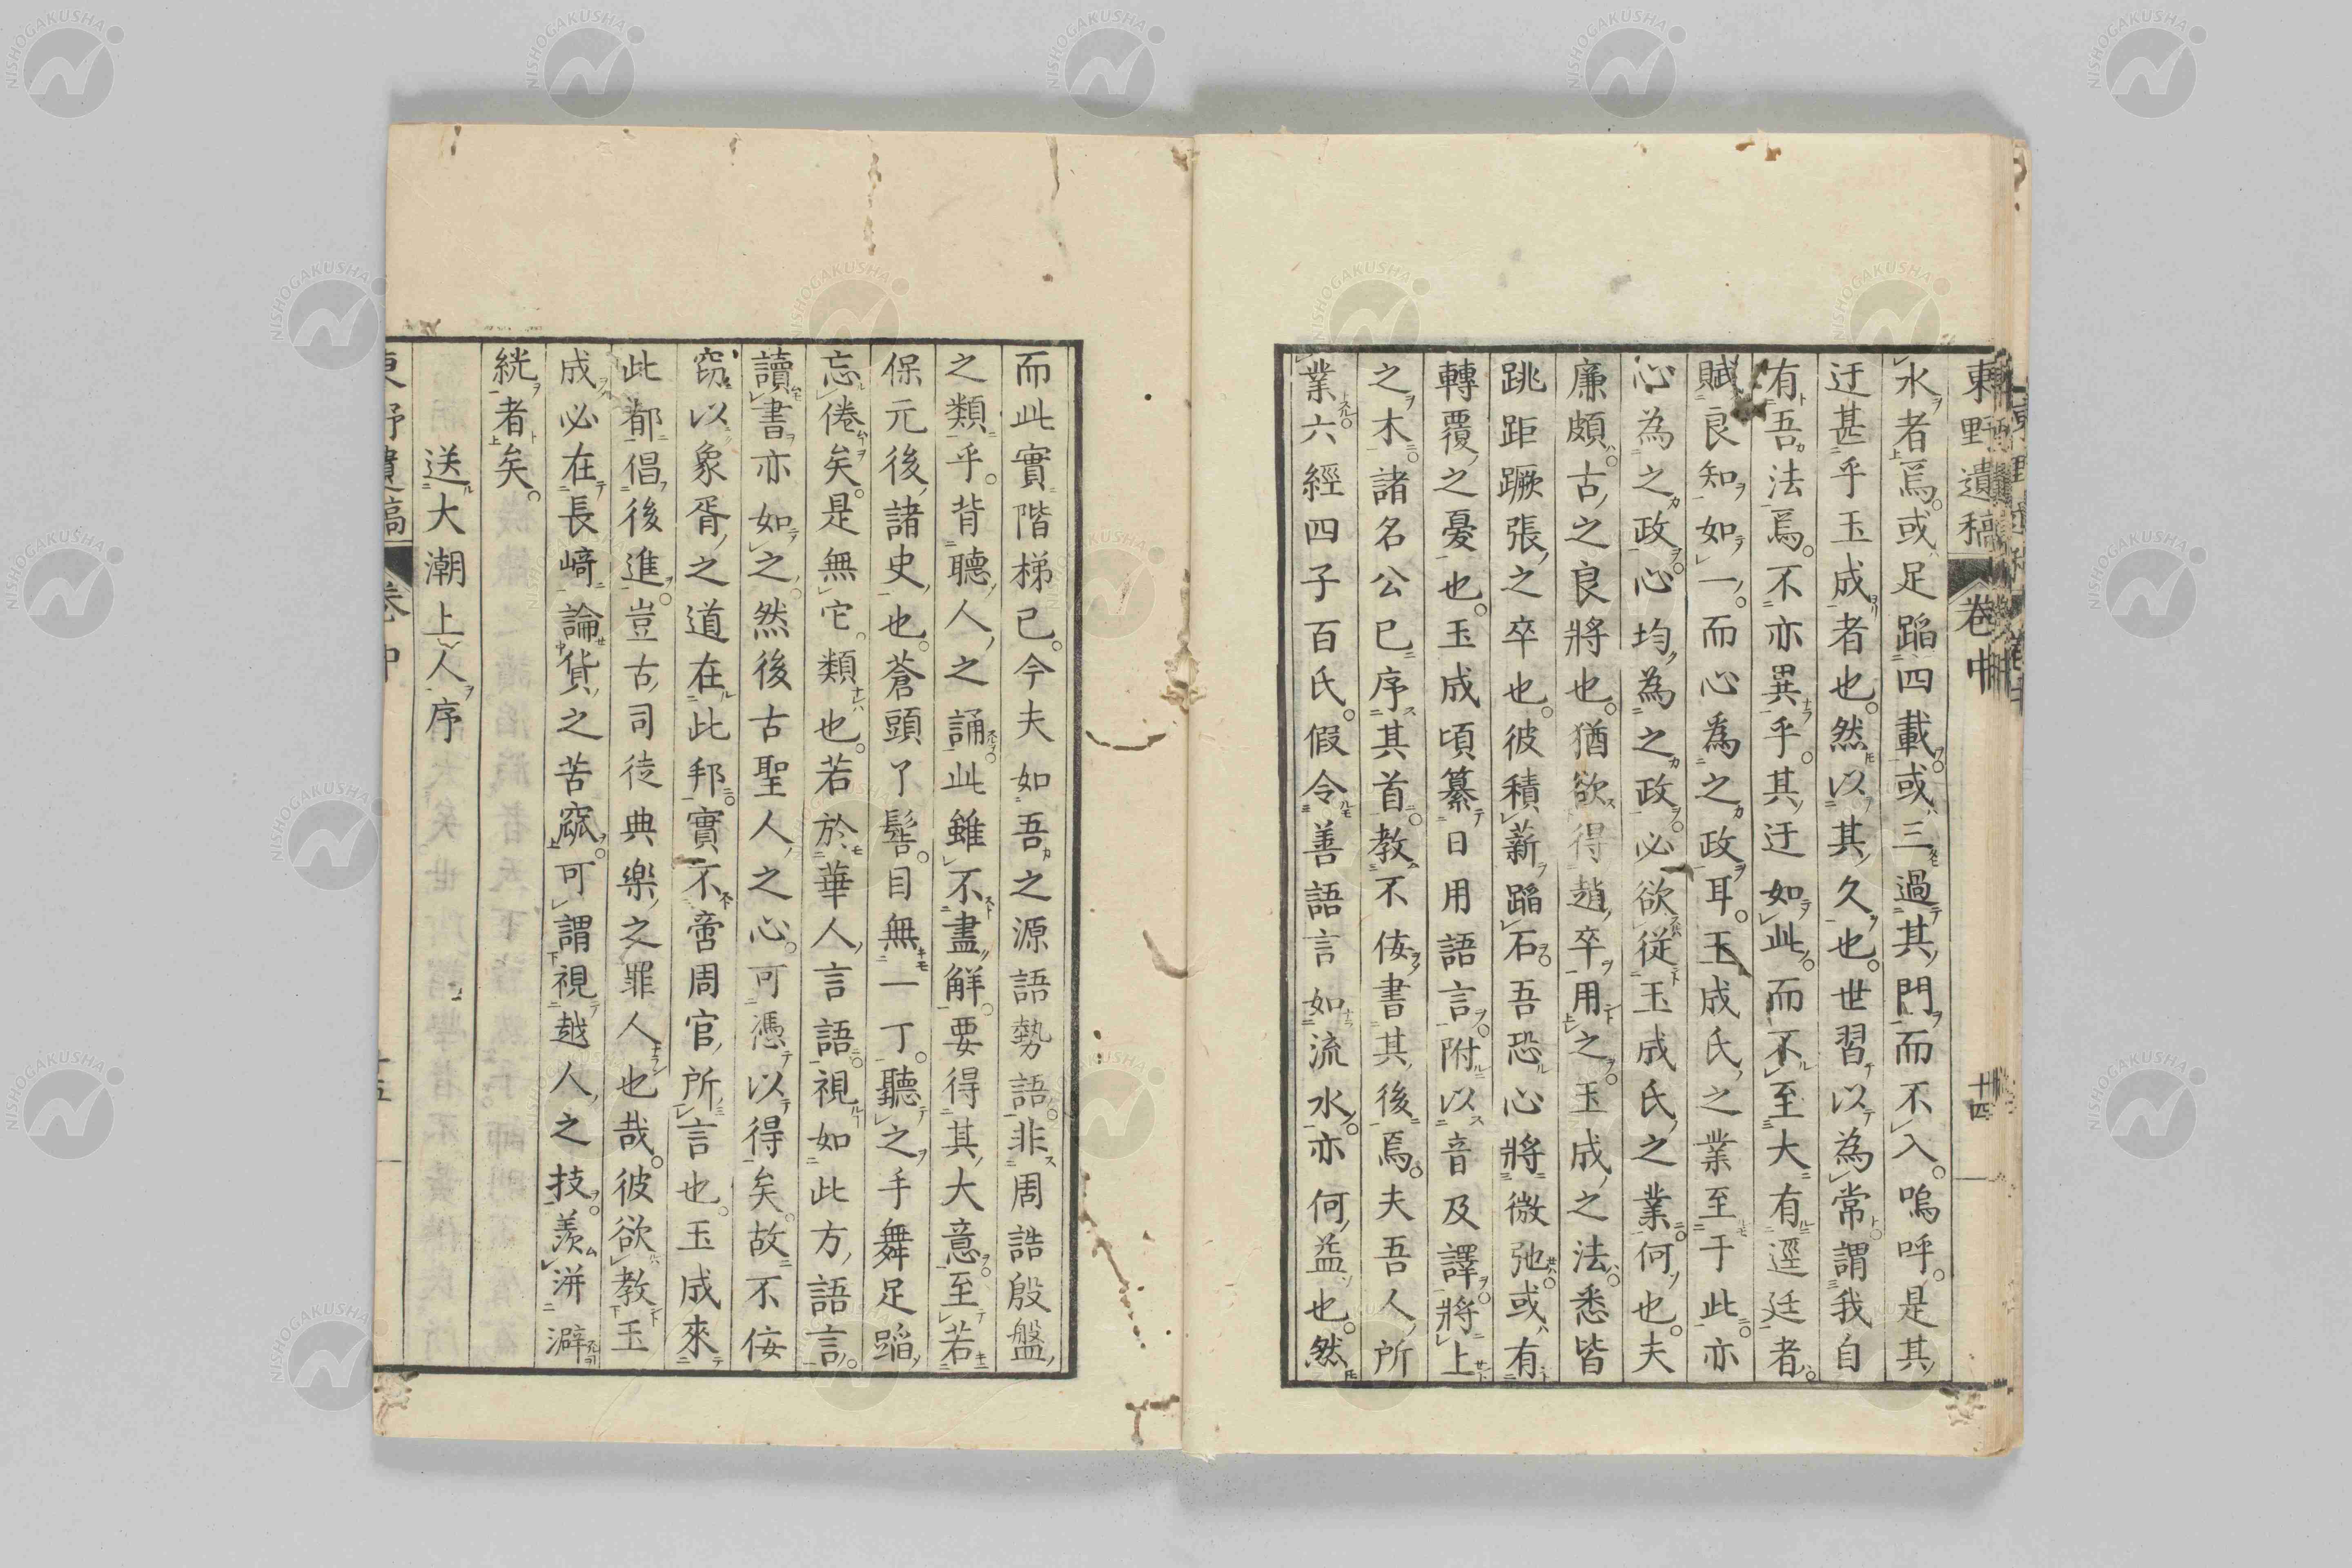 東野遺稿 卷中 十四
水者焉或足蹈四載或三過其門而不入嗚呼是其
迂甚乎玉成者也然以其久也世習以為常謂我自
有吾法焉不亦異乎其迂如此而不至大有逕廷者
賦良知如一而心為之政耳玉成氏之業至于此亦
心為之政心均為之政必欲從玉成氏之業何也夫
廉頗古之良將也猶欲得趙卒用之玉成之法悉皆
跳距蹶張之卒也彼積薪蹈石吾恐心將微弛或有
轉覆之憂也玉成頃纂日用語言附以音及譯將上
之木諸名公已序其首教不侫書其後焉夫吾人所
業六經四子百氏假令善語言如流水亦何益也然
而此實階梯已今夫如吾之源語勢語非周誥殷盤
之類乎背聽人之誦此雖不盡解要得其大意至若
保元後諸史也蒼頭丫髻目無一丁聽之手舞足蹈
忘倦矣是無它類也若於華人言語視如此方語言
讀書亦如之然後古聖人之心可憑以得矣故不侫
竊以象胥之道在此邦實不啻周官所言也玉成來
此都倡後進豈古司徒典樂之罪人也哉彼欲教玉
成必在長崎論貨之苦窳可謂視越人之技羨洴澼
絖者矣
送大潮上人序
東野遺稿 卷中 十五
NISHOGAKUSHA